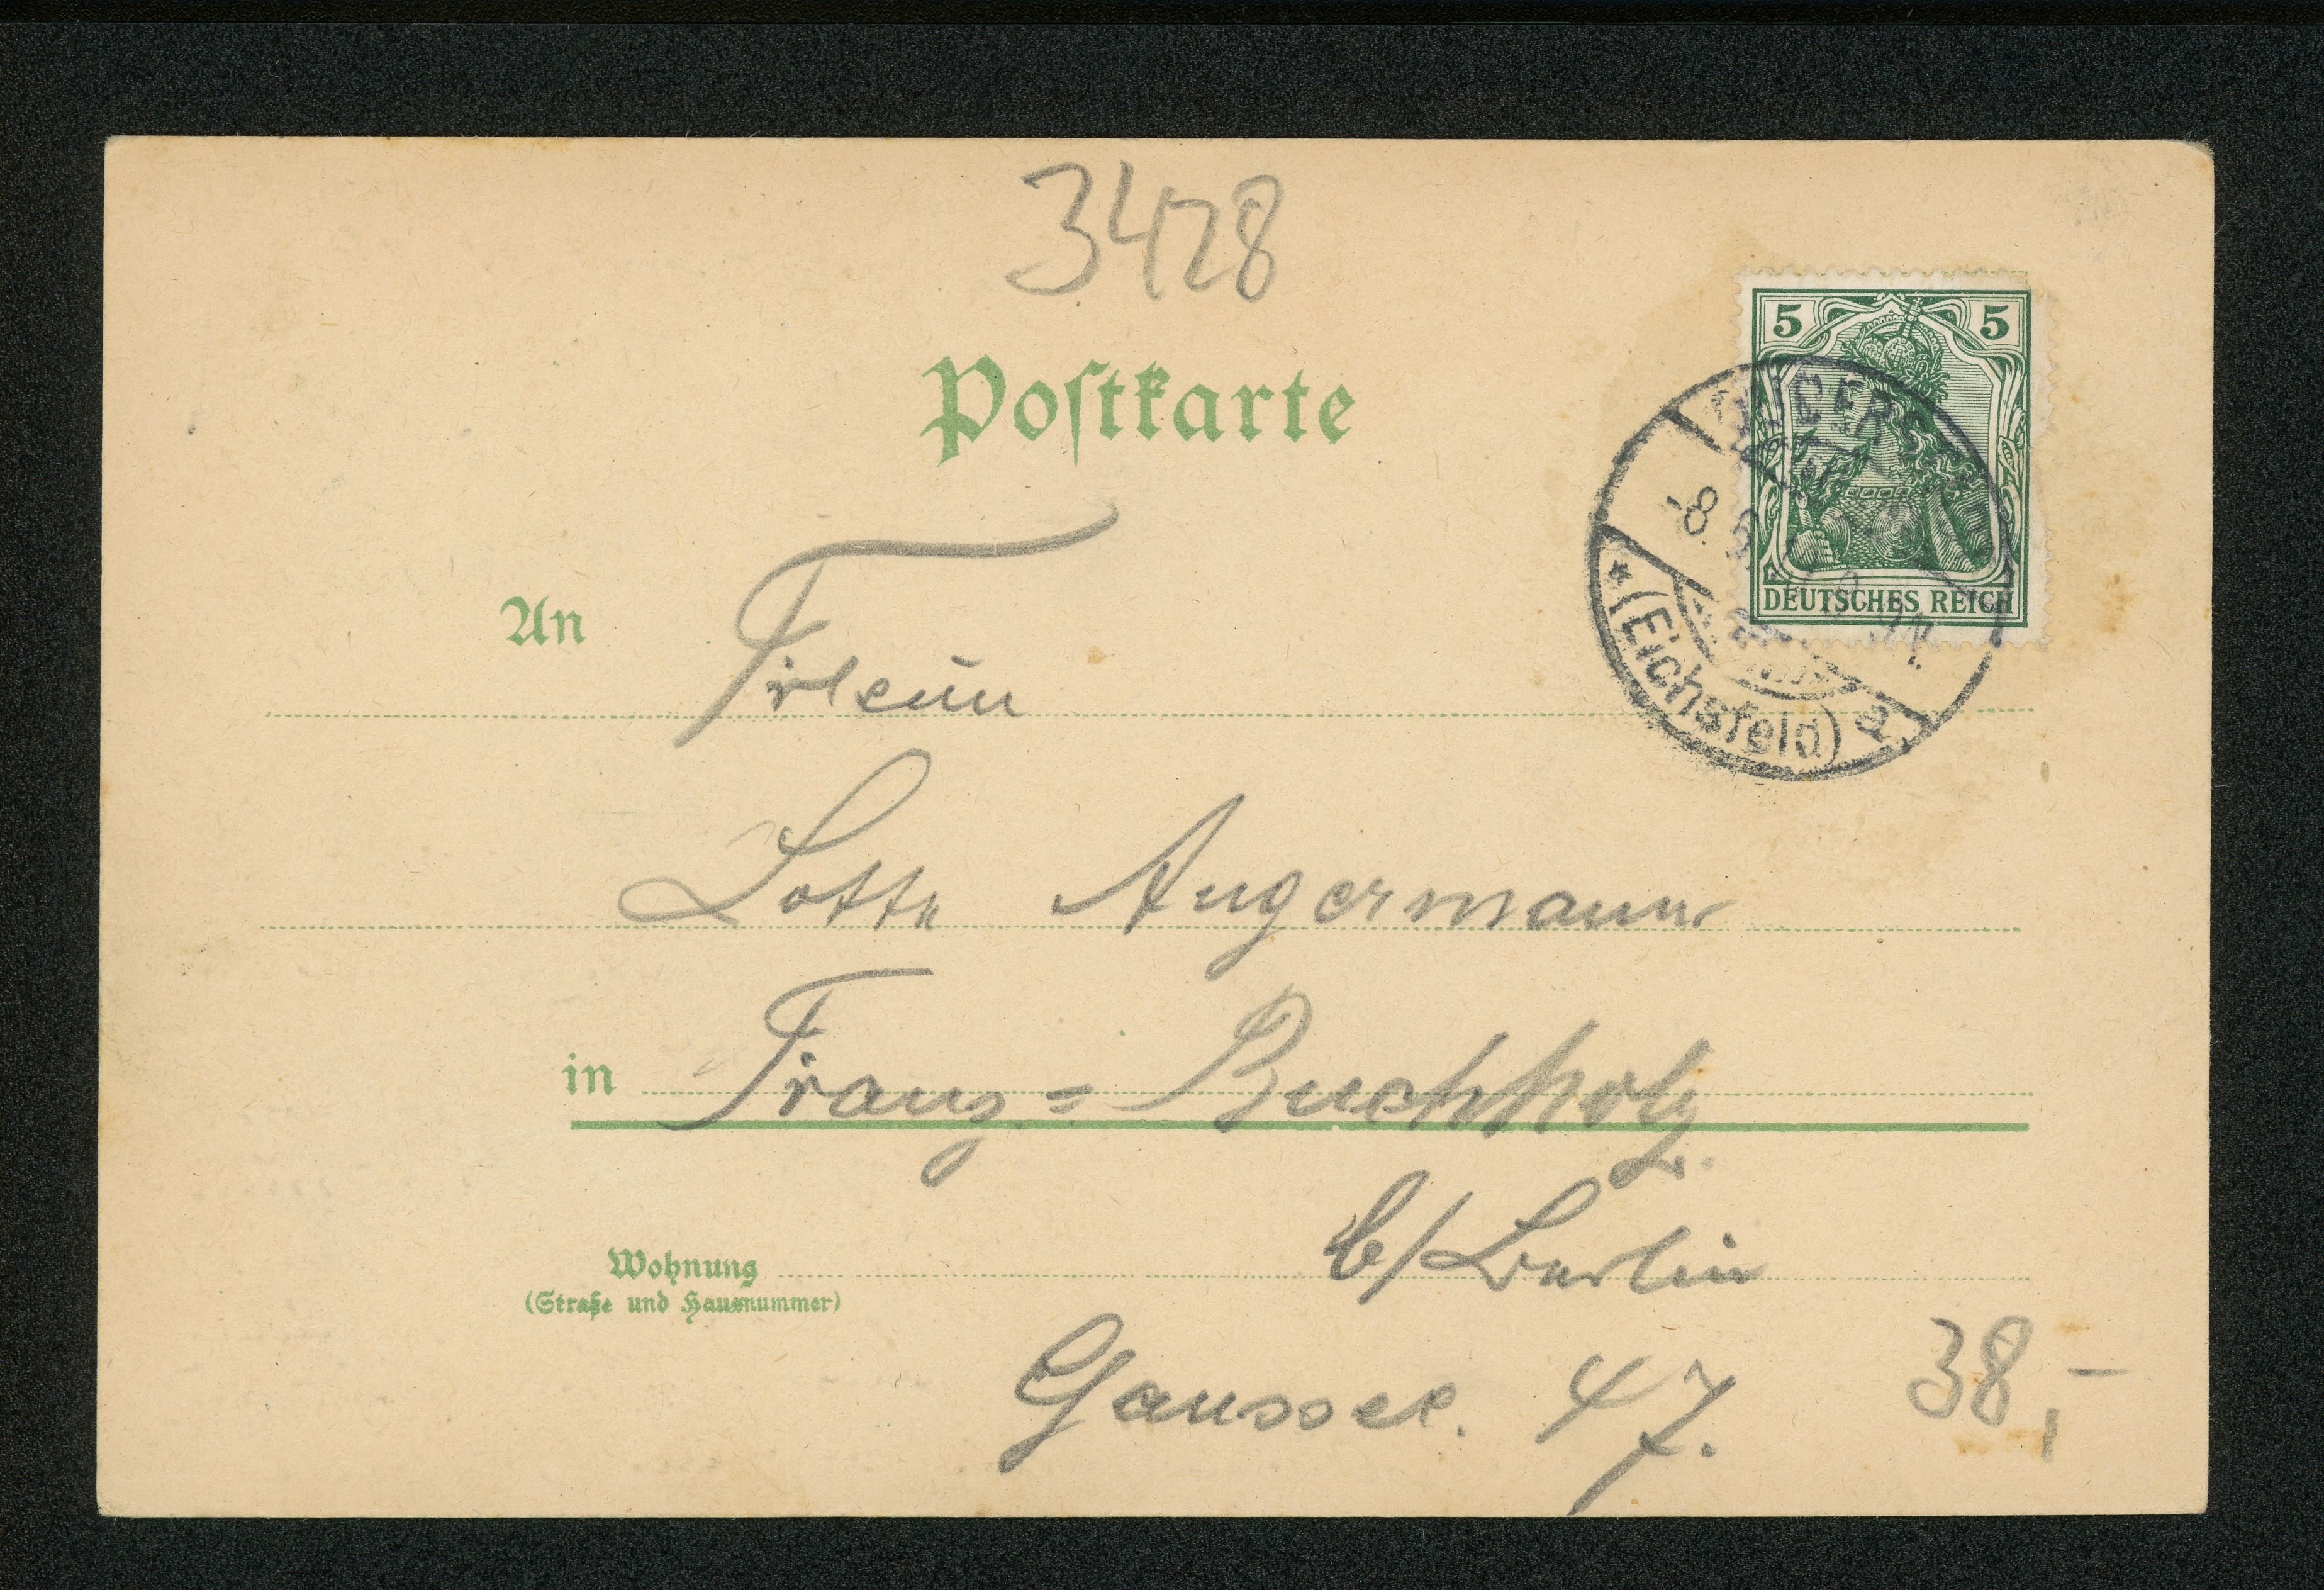 3428
Postkarte
5 5
DEUTSCHES REICH
-8.
(Eichsfeld) a
An Frlein
Lotte Angermann
in Franz=Buchholz
b/Berlin
Wohnung
(Straße und Hausnummer)
47.
38,-